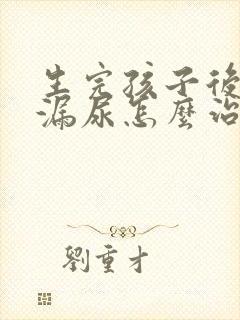 生完孩子後
漏尿怎麼治
劉重才